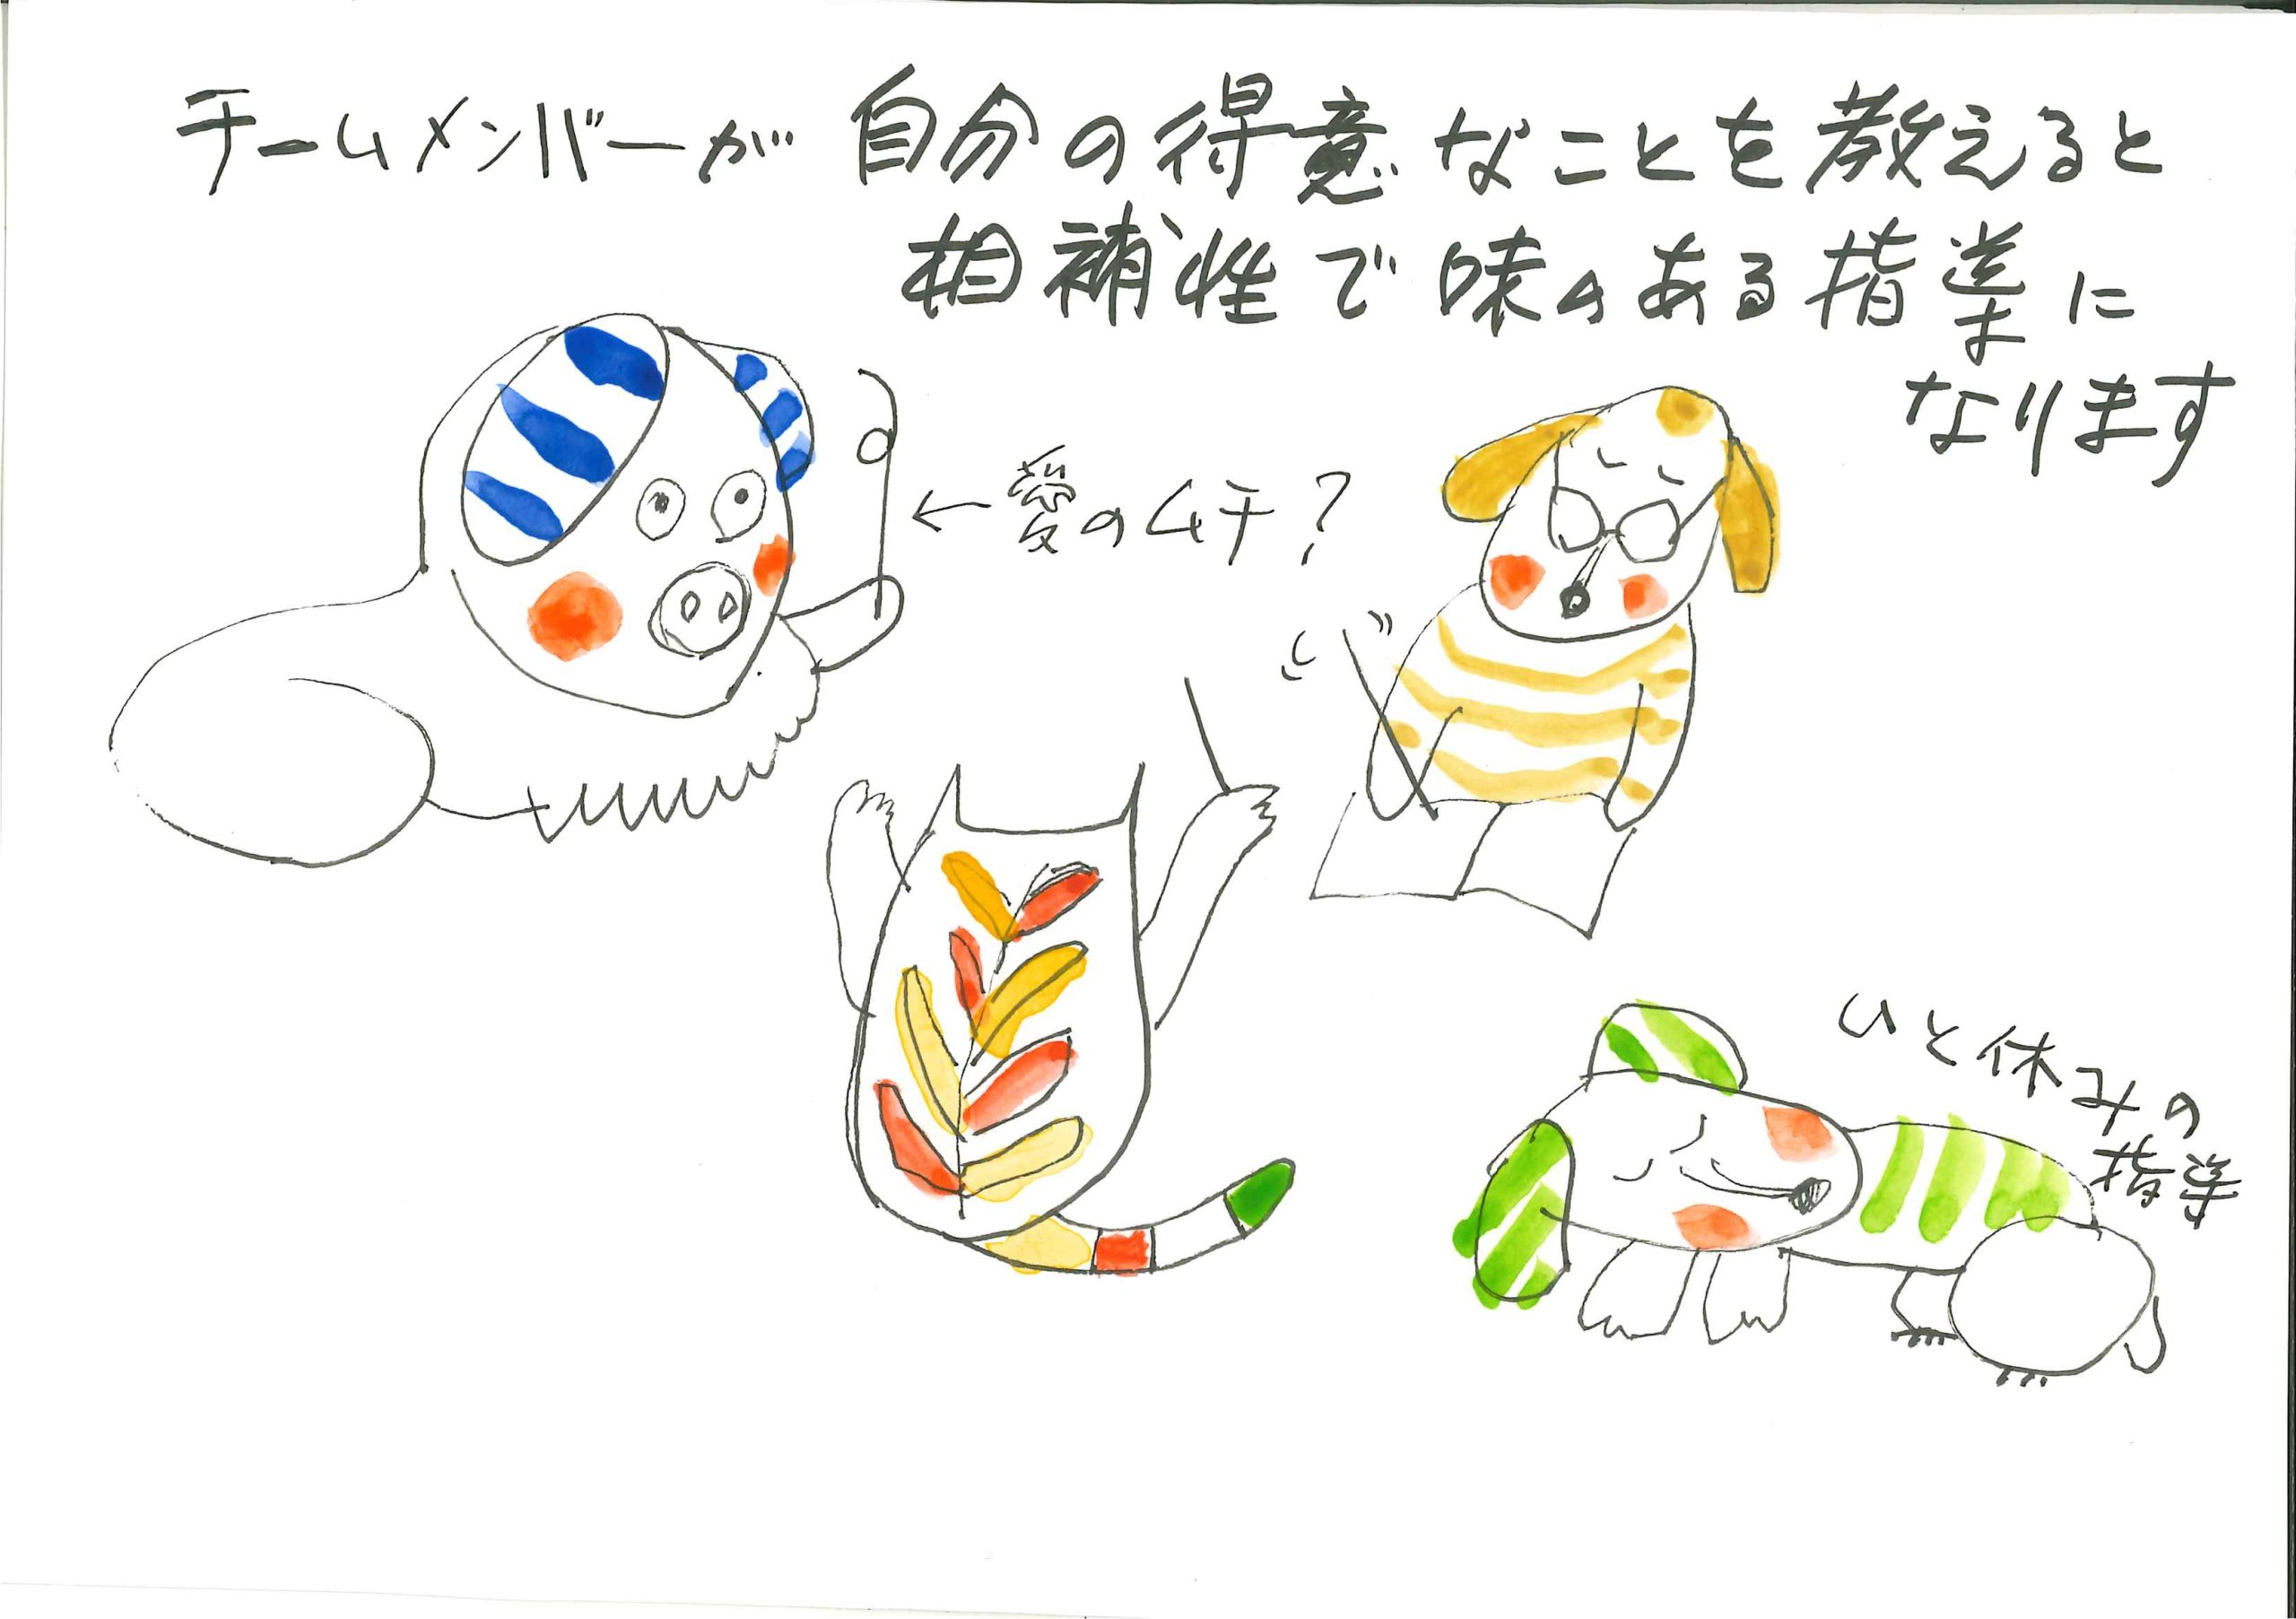 チームメンバーが 自分の得意なことを教えると
相補性で味のある指導に
なります
←愛のムチ?
ひと休みの
指導